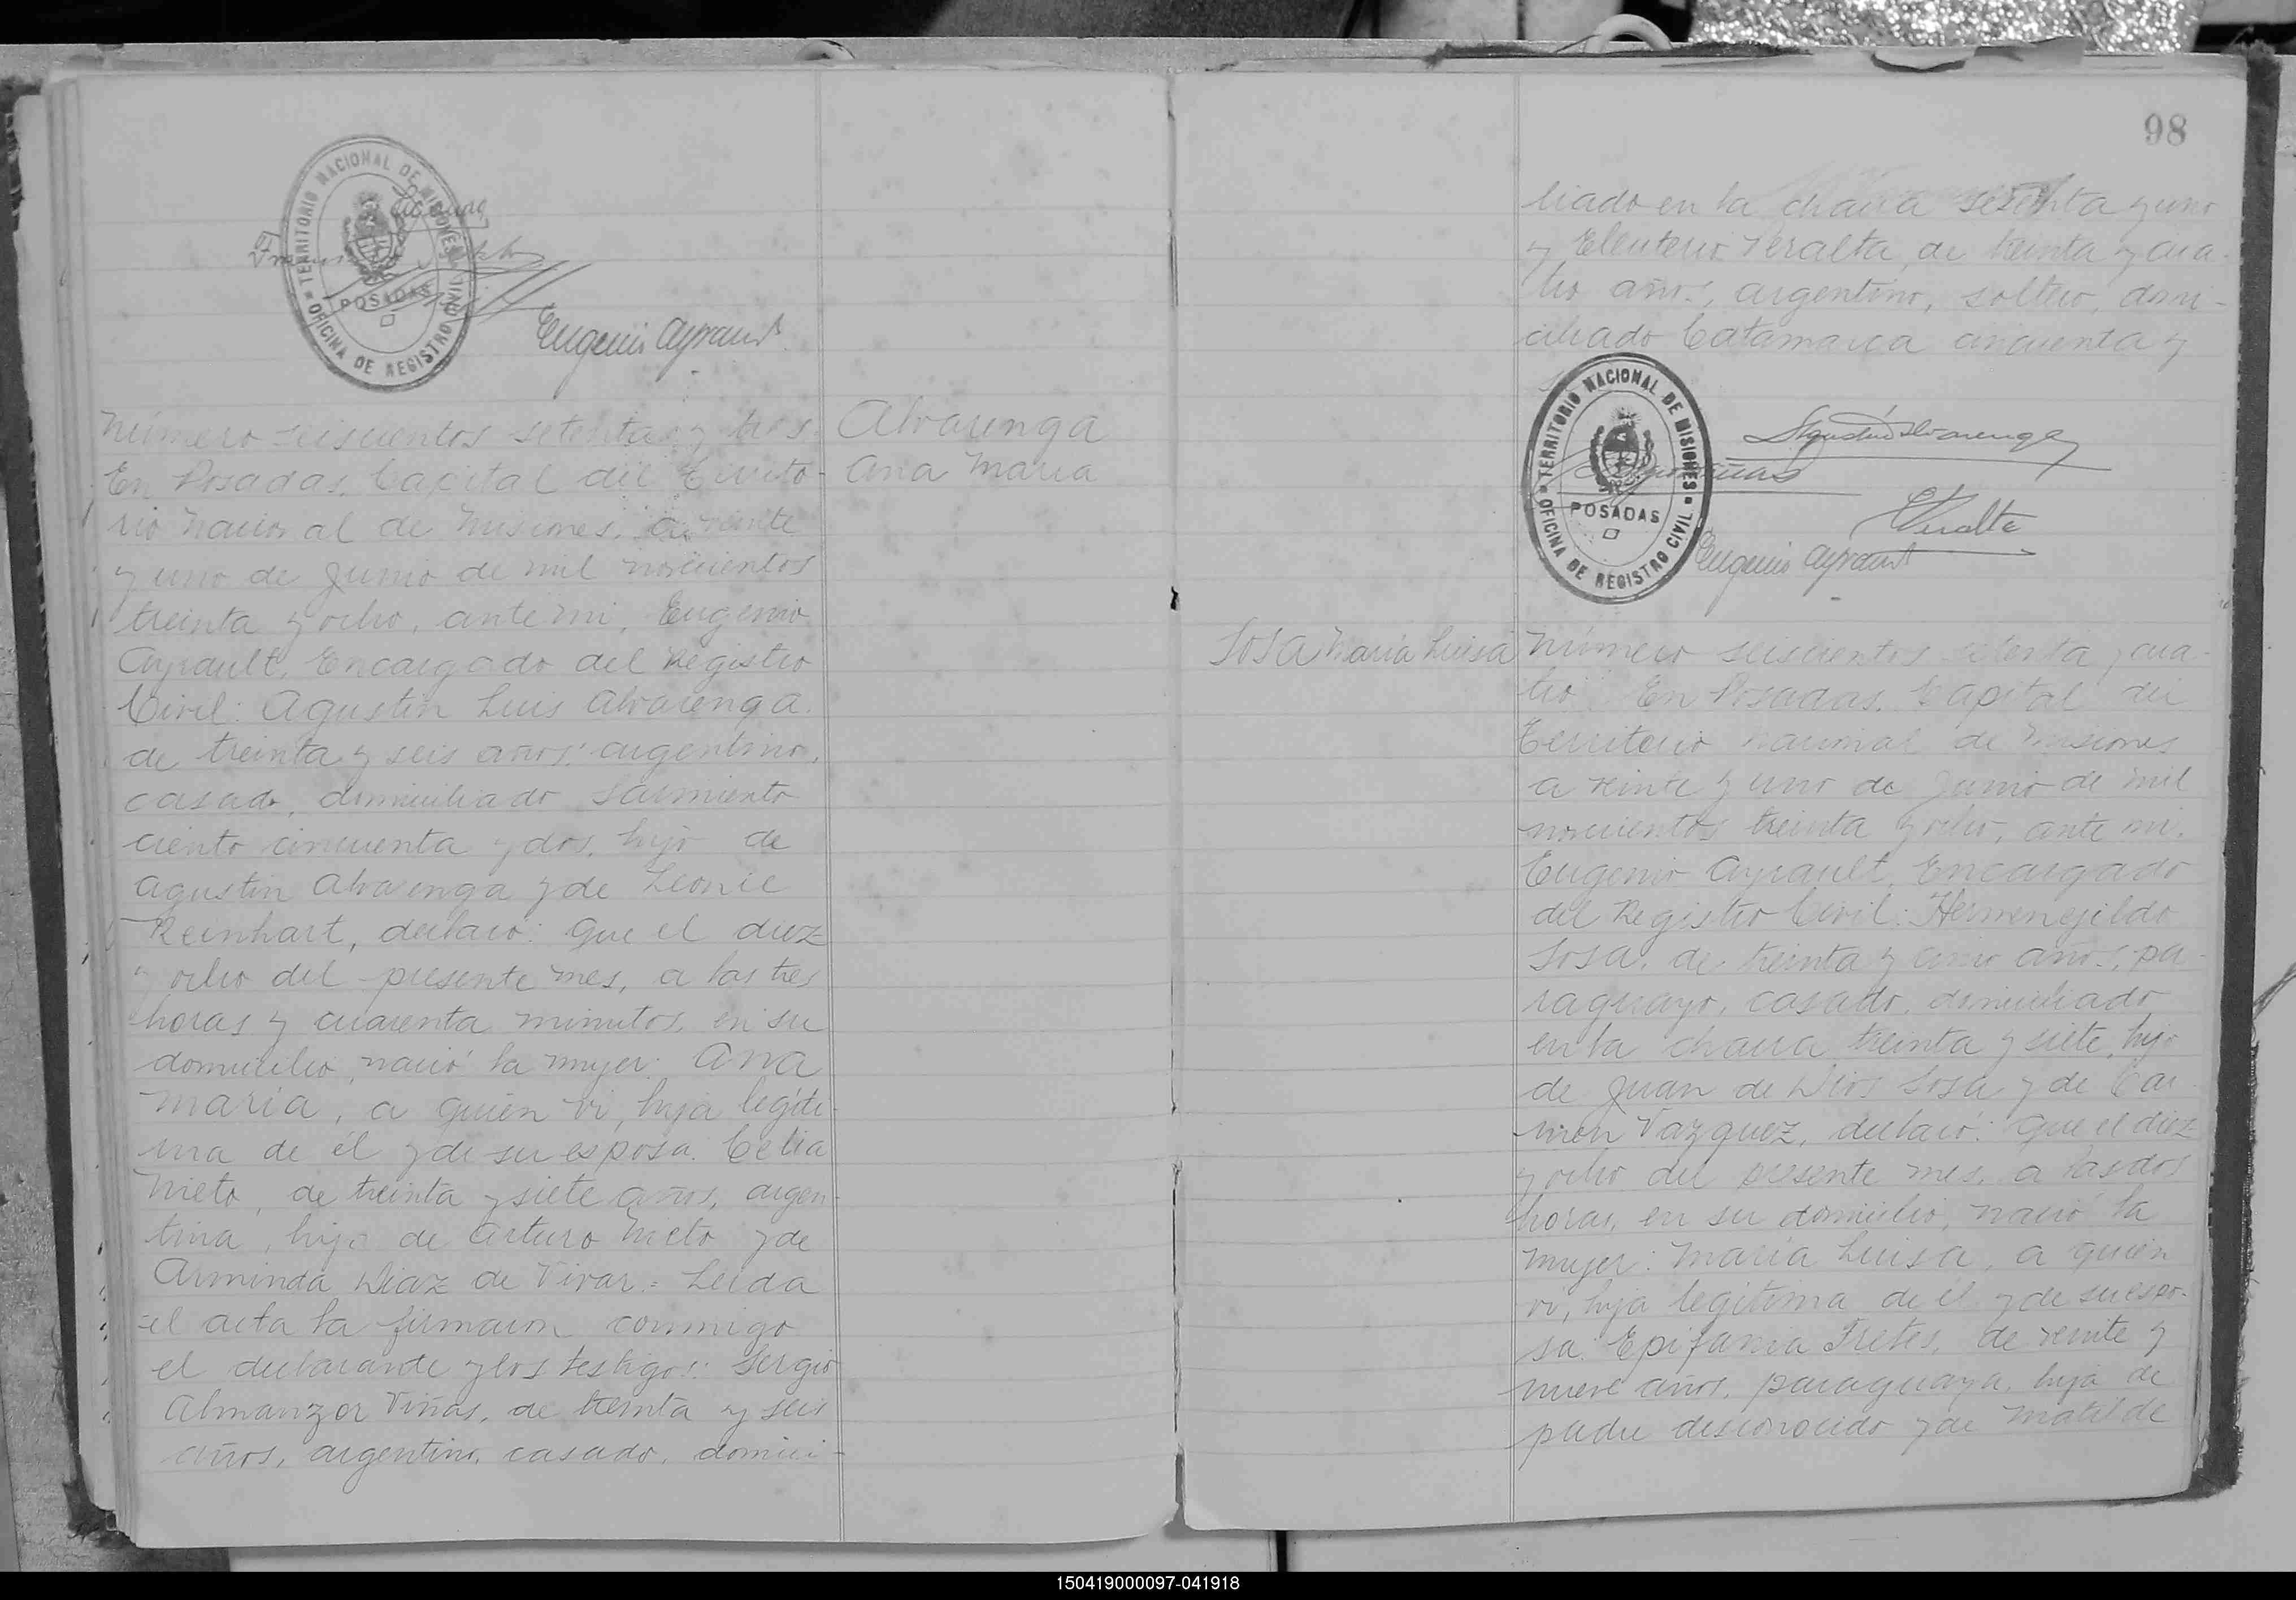 TERRITORIO NACIONAL DE MISIONES
POSADAS
OFICINA DE REGISTRO CIVIL
Eugenio Ayrault
Número seiscientos setenta y tres
En Posadas, Capital del Territo-
rio Nacional de Misiones, a veinte
y uno de Junio de mil novecientos
treinta y ocho, ante mi, Eugenio
Ayrault, Encargado del Registro
Civil: Agustin Luis Alvarenga,
de treinta y seis años, argentino,
casado, domiciliado Sarmiento
ciento cincuenta y dos, hijo de
Agustin Alvarenga y de Leonie
Reinhart, declaró: Que el diez
y ocho del presente mes, a las tres
horas y cuarenta minutos, en su
domicilio, nació la mujer: Ana
María, a quien vi, hija legíti-
ma de él y de su esposa: Celia
Nieto, de treinta y siete años, argen-
tina, hija de Arturo Nieto y de
Arminda Diaz de Vivar.= Leida
el acta la firmaron conmigo
el declarante y los testigos: Sergio
Almanzor Viñas, de treinta y seis
años, argentino, casado, domici-
Alvarenga
Ana María
98
liado en la chacra sesenta y uno
y Eleuterio Peralta, de treinta y cua-
tro años, argentino, soltero, domi-
ciliado Catamarca cincuenta y
TERRITORIO NACIONAL DE MISIONES
POSADAS
OFICINA DE REGISTRO CIVIL
Agustin Alvarenga
EPeralta
Eugenio Ayrault
Sosa María Luisa
Número seiscientos setenta y cua-
tro. En Posadas, Capital del
Territorio Nacional de Misiones
a veinte y uno de Junio de mil
novecientos treinta y ocho, ante mi,
Eugenio Ayrault, Encargado
del Registro Civil: Hermenejildo
Sosa, de treinta y cinco años, pa-
raguayo, casado, domiciliado
en la chacra treinta y siete, hijo
de Juan de Dios Sosa y de Car-
men Vazquez, declaró: Que el diez
y ocho del presente mes, a las dos
horas, en su domicilio, nació la
mujer: María Luisa, a quien
vi, hija legítima de él y de su espo-
sa: Epifania Fretes, de veinte y
nueve años, paraguaya, hija de
padre desconocido y de Matilde
150419000097-041918